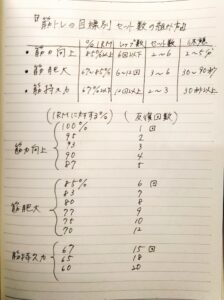 『筋トレの目標別』セット数の組み方
%1RM レップ数 セット数 休憩
・筋力向上 85%以上 6回以下 2〜6 2〜5分
・筋肥大 67〜85% 6〜12回 3〜6 30〜90秒
・筋持久力 67%以下 12回以上 2〜3 30秒以上
(1RMに対する%) (反復回数)
筋力向上
100% 1回
95 2
93 3
90 4
87 5
筋肥大
85% 6回
83 7
80 8
77 9
75 10
70 12
筋持久力
67 15回
65 18
60 20